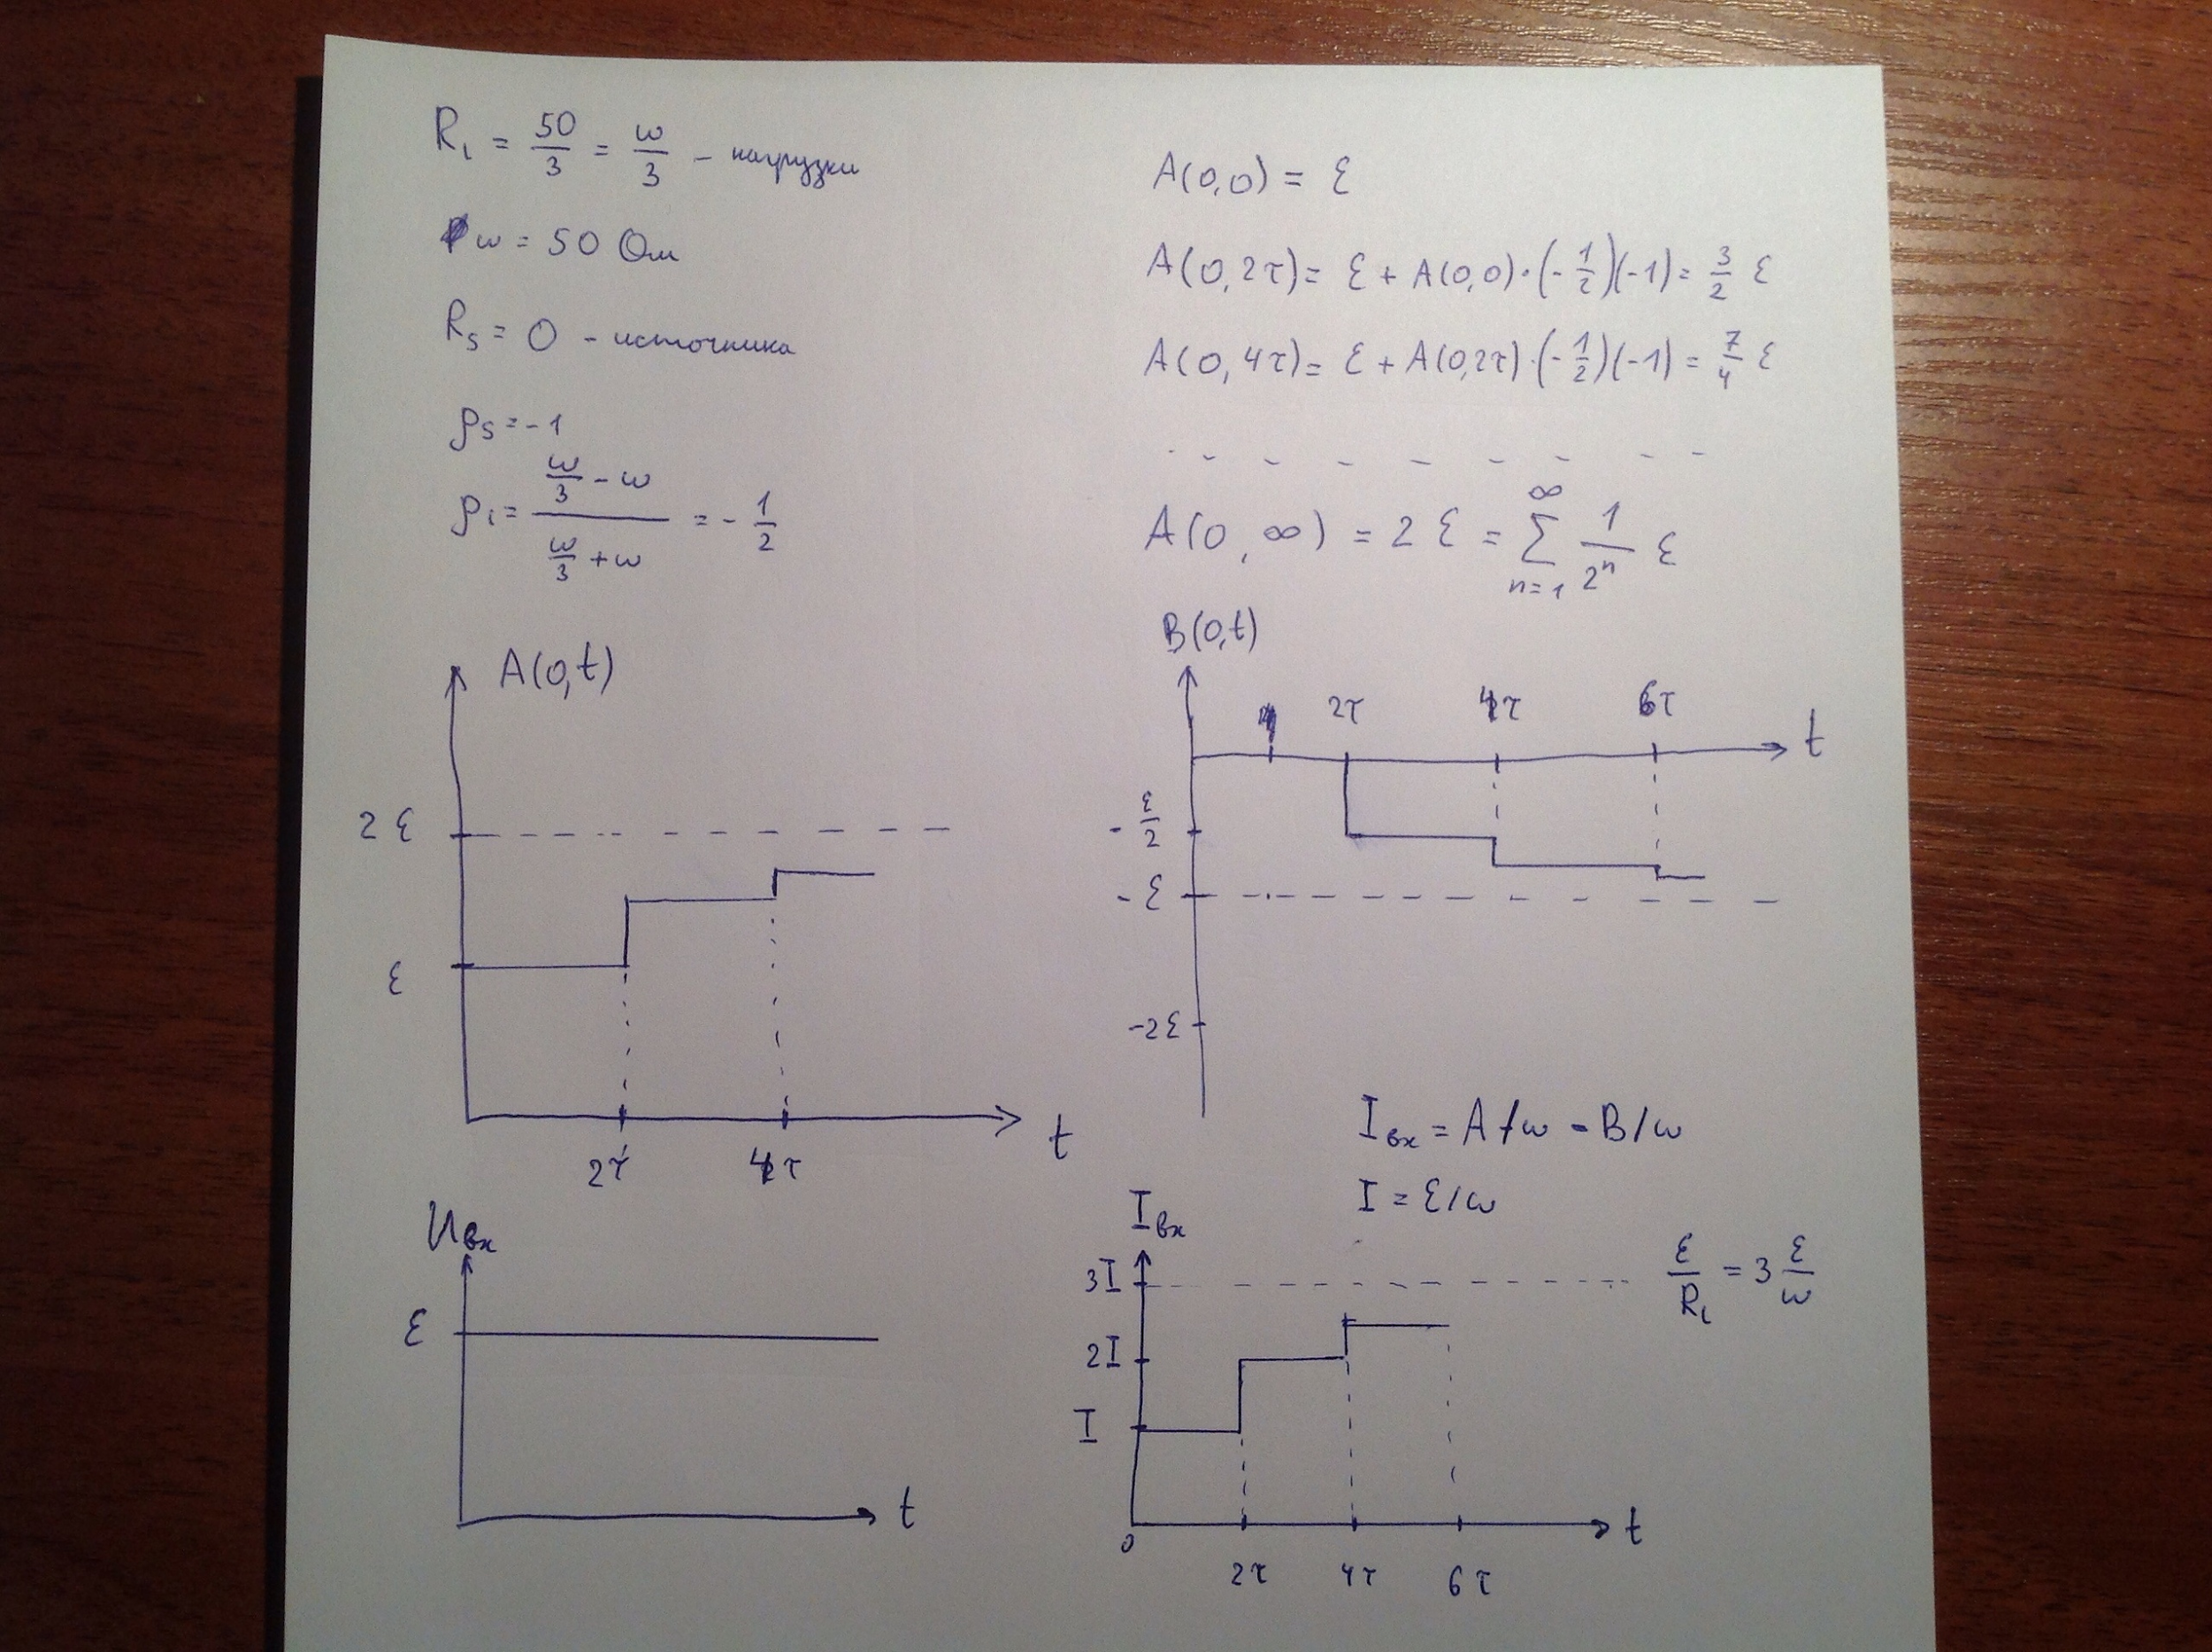 R₁ = 50/3 = ω/3 – нагрузки
ω = 50 Ом
R_S = 0 - источника
ρ_S = -1
ρ₁ = (ω/3 - ω)/(ω/3 + ω) = - 1/2
A(0,0) = ℰ
A(0,2τ) = ℰ + A(0,0)·(-1/2)(-1) = 3/2 ℰ
A(0,4τ) = ℰ + A(0,2τ)·(-1/2)(-1) = 7/4 ℰ
A(0,∞) = 2ℰ = ∑_{n=1}^{∞} 1/2ⁿ ℰ
A(0,t)
2ℰ
ℰ
2τ 4τ t
B(0,t)
2τ 4τ 6τ t
-ℰ/2
-ℰ
-2ℰ
U_вх
ℰ
t
I_вх = A/ω - B/ω
I = ℰ/ω
I_вх
3I
ℰ/R₁ = 3 ℰ/ω
2I
I
0 2τ 4τ 6τ t